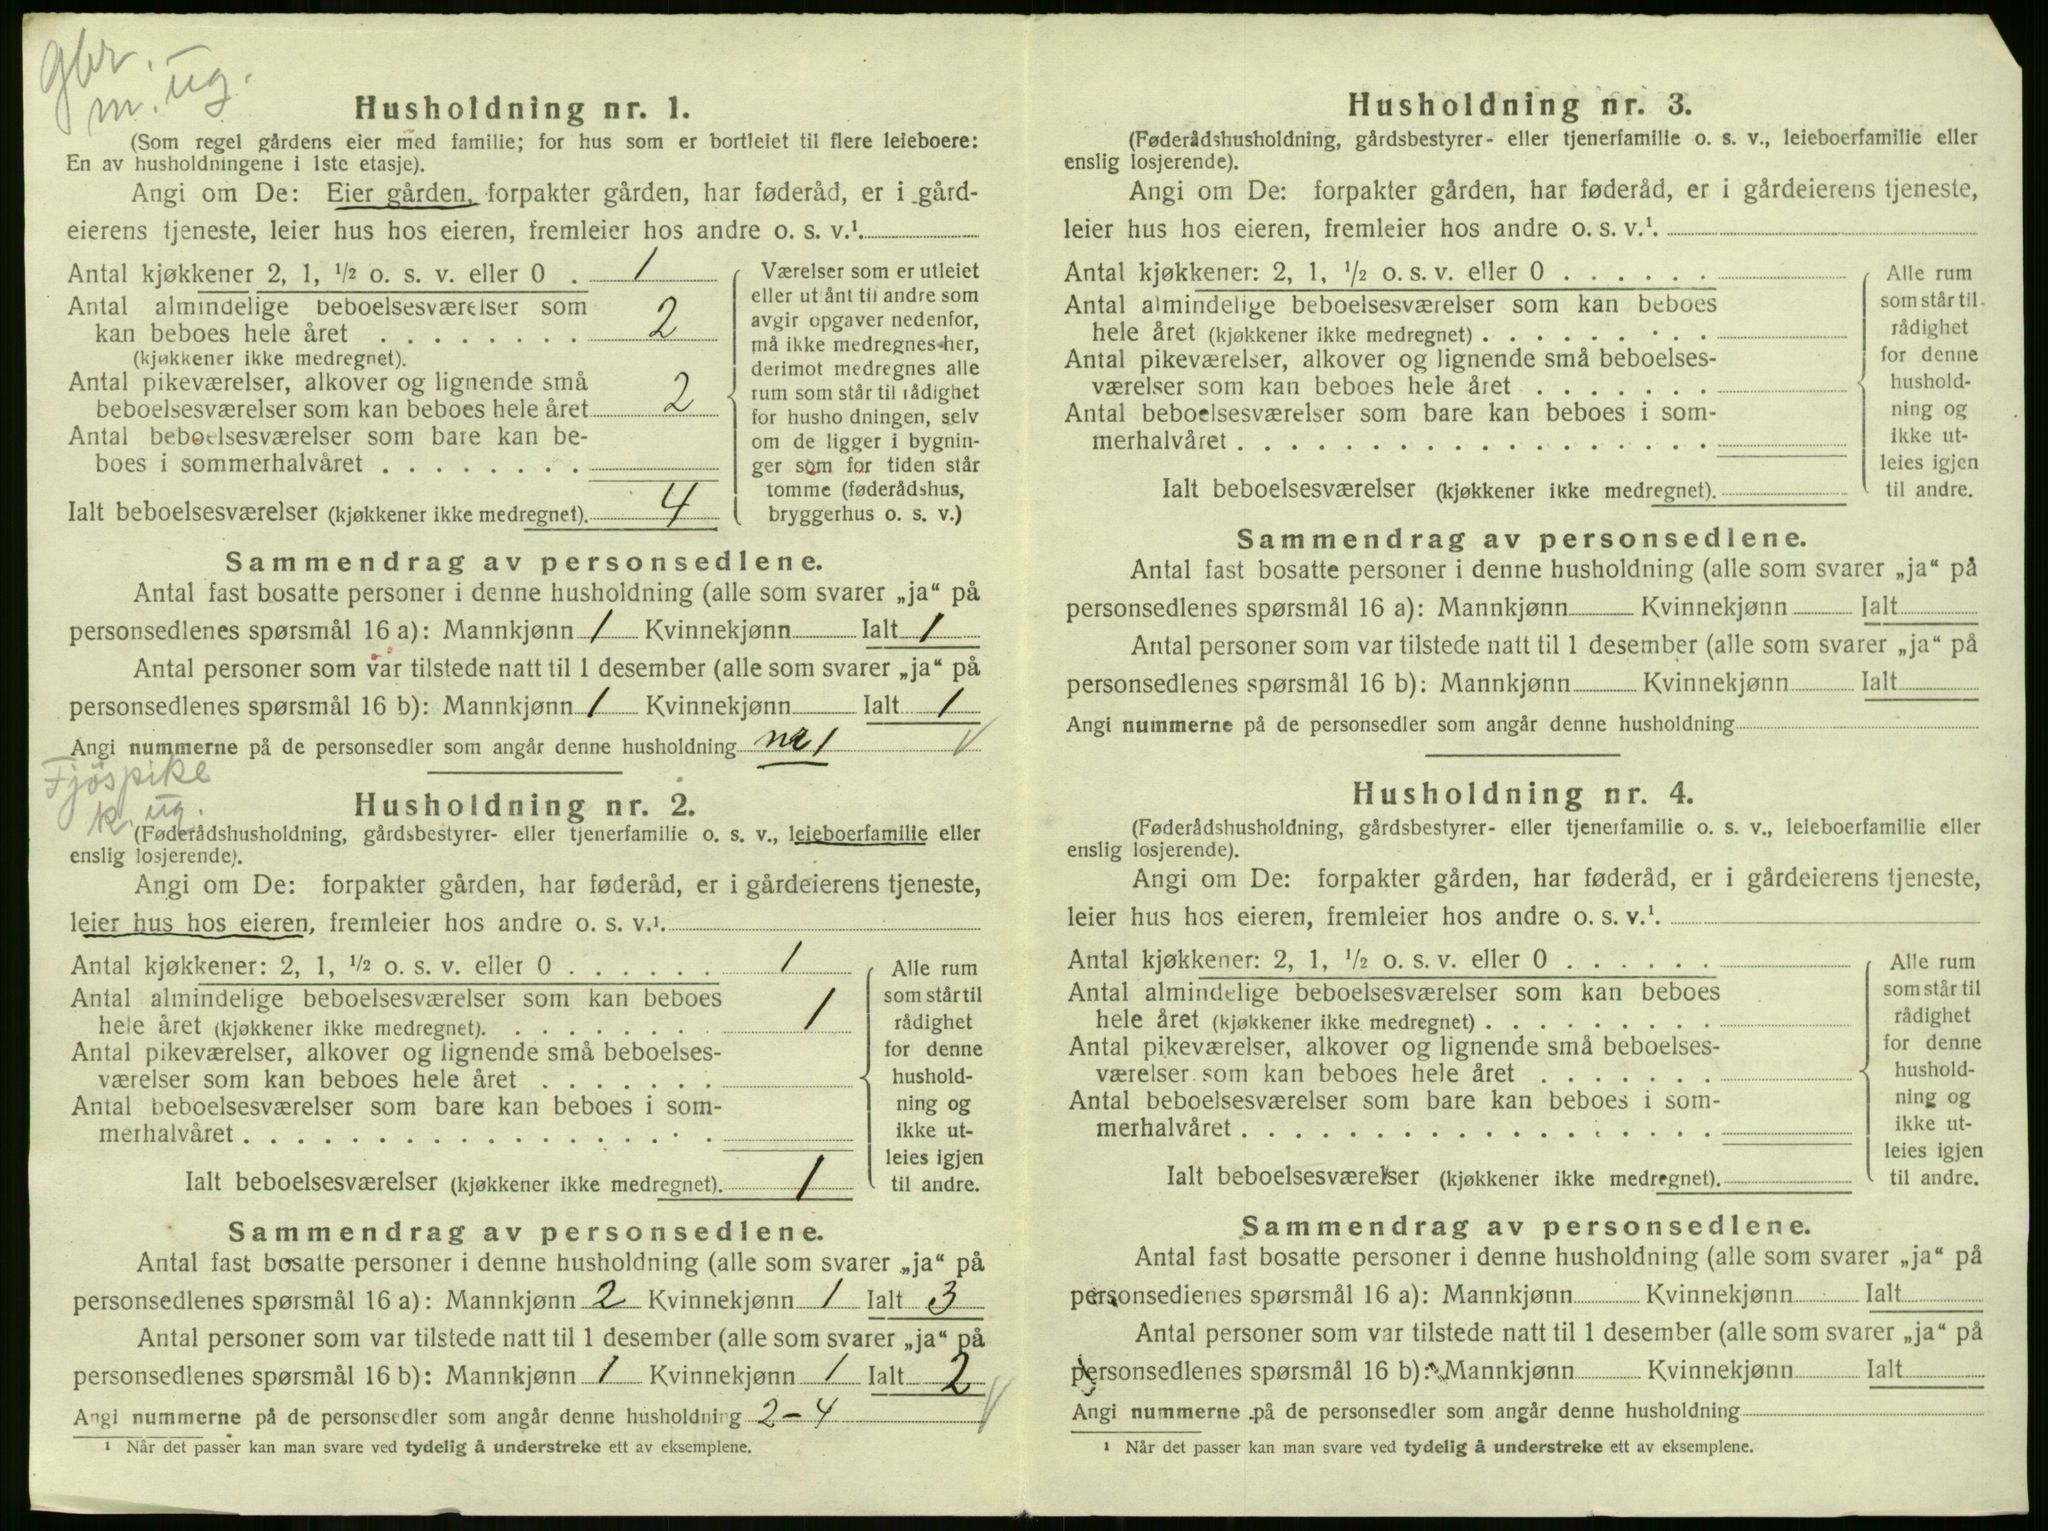 gbr.
m. ug.
Husholdning nr. 1.
(Som regel gårdens eier med familie; for hus som er bortleiet til flere leieboere:
En av husholdningene i 1ste etasje).
Angi om De: Eier gården, forpakter gården, har føderåd, er i gård-
eierens tjeneste, leier hus hos eieren, fremleier hos andre o. s. v.¹
Antal kjøkkener 2, 1, ½ o. s. v. eller 0 . 1
Antal almindelige beboelsesværelser som
kan beboes hele året . . . . . . . . 2
(kjøkkener ikke medregnet).
Antal pikeværelser, alkover og lignende små
beboelsesværelser som kan beboes hele året 2
Antal beboelsesværelser som bare kan be-
boes i sommerhalvåret . . . . . . . .
Ialt beboelsesværelser (kjøkkener ikke medregnet). 4
Værelser som er utleiet
eller ut ånt til andre som
avgir opgaver nedenfor,
må ikke medregnes her,
derimot medregnes alle
rum som står til rådighet
for husho dningen, selv
om de ligger i bygnin-
ger som for tiden står
tomme (føderådshus,
bryggerhus o. s. v.)
Sammendrag av personsedlene.
Antal fast bosatte personer i denne husholdning (alle som svarer „ja“ på
personsedlenes spørsmål 16 a): Mannkjønn 1 Kvinnekjønn Ialt 1
Antal personer som var tilstede natt til 1 desember (alle som svarer „ja“ på
personsedlenes spørsmål 16 b): Mannkjønn 1 Kvinnekjønn Ialt 1
Angi nummerne på de personsedler som angår denne husholdning nr 1
Fjöspike
k. ug.
Husholdning nr. 2.
(Føderådshusholdning, gårdsbestyrer- eller tjenerfamilie o. s. v., leieboerfamilie eller
enslig losjerende).
Angi om De: forpakter gården, har føderåd, er i gårdeierens tjeneste,
leier hus hos eieren, fremleier hos andre o. s. v.¹
Antal kjøkkener: 2, 1, ½ o. s. v. eller 0 . . . . . . 1
Antal almindelige beboelsesværelser som kan beboes
hele året (kjøkkener ikke medregnet). . . . . . . . 1
Antal pikeværelser, alkover og lignende små beboelses-
værelser som kan beboes hele året . . . . . . .
Antal beboelsesværelser som bare kan beboes i som-
merhalvåret . . . . . . . . . . . . . . . . . .
Ialt beboelsesværelser (kjøkkener ikke medregnet). 1
Alle rum
som står til
rådighet
for denne
hushold-
ning og
ikke ut-
leies igjen
til andre.
Sammendrag av personsedlene.
Antal fast bosatte personer i denne husholdning (alle som svarer „ja“ på
personsedlenes spørsmål 16 a): Mannkjønn 2 Kvinnekjønn 1 Ialt 3
Antal personer som var tilstede natt til 1 desember (alle som svarer „ja“ på
personsedlenes spørsmål 16 b): Mannkjønn 1 Kvinnekjønn 1 Ialt 2
Angi nummerne på de personsedler som angår denne husholdning 2-4
¹ Når det passer kan man svare ved tydelig å understreke ett av eksemplene.
Husholdning nr. 3.
(Føderådshusholdning, gårdsbestyrer- eller tjenerfamilie o. s. v., leieboerfamilie eller
enslig losjerende).
Angi om De: forpakter gården, har føderåd, er i gårdeierens tjeneste,
leier hus hos eieren, fremleier hos andre o. s. v.¹
Antal kjøkkener: 2, 1, ½ o. s. v. eller 0 . . . . . .
Antal almindelige beboelsesværelser som kan beboes
hele året (kjøkkener ikke medregnet) . . . . . . . .
Antal pikeværelser, alkover og lignende små beboelses-
værelser som kan beboes hele året . . . . . . .
Antal beboelsesværelser som bare kan beboes i som-
merhalvåret . . . . . . . . . . . . . . . . . .
Ialt beboelsesværelser (kjøkkener ikke medregnet).
Alle rum
som står til
rådighet
for denne
hushold-
ning og
ikke ut-
leies igjen
til andre.
Sammendrag av personsedlene.
Antal fast bosatte personer i denne husholdning (alle som svarer „ja“ på
personsedlenes spørsmål 16 a): Mannkjønn Kvinnekjønn Ialt
Antal personer som var tilstede natt til 1 desember (alle som svarer „ja“ på
personsedlenes spørsmål 16 b): Mannkjønn Kvinnekjønn Ialt
Angi nummerne på de personsedler som angår denne husholdning
Husholdning nr. 4.
(Føderådshusholdning, gårdsbestyrer- eller tjenerfamilie o. s. v., leieboerfamilie eller
enslig losjerende).
Angi om De: forpakter gården, har føderåd, er i gårdeierens tjeneste,
leier hus hos eieren, fremleier hos andre o. s. v.¹
Antal kjøkkener: 2, 1, ½ o. s. v. eller 0 . . . . . .
Antal almindelige beboelsesværelser som kan beboes
hele året (kjøkkener ikke medregnet) . . . . . . . .
Antal pikeværelser, alkover og lignende små beboelses-
værelser som kan beboes hele året . . . . . . .
Antal beboelsesværelser som bare kan beboes i som-
merhalvåret . . . . . . . . . . . . . . . . . .
Ialt beboelsesværelser (kjøkkener ikke medregnet).
Alle rum
som står til
rådighet
for denne
hushold-
ning og
ikke ut-
leies igjen
til andre.
Sammendrag av personsedlene.
Antal fast bosatte personer i denne husholdning (alle som svarer „ja“ på
personsedlenes spørsmål 16 a): Mannkjønn Kvinnekjønn Ialt
Antal personer som var tilstede natt til 1 desember (alle som svarer „ja“ på
personsedlenes spørsmål 16 b): Mannkjønn Kvinnekjønn Ialt
Angi nummerne på de personsedler som angår denne husholdning
¹ Når det passer kan man svare ved tydelig å understreke ett av eksemplene.